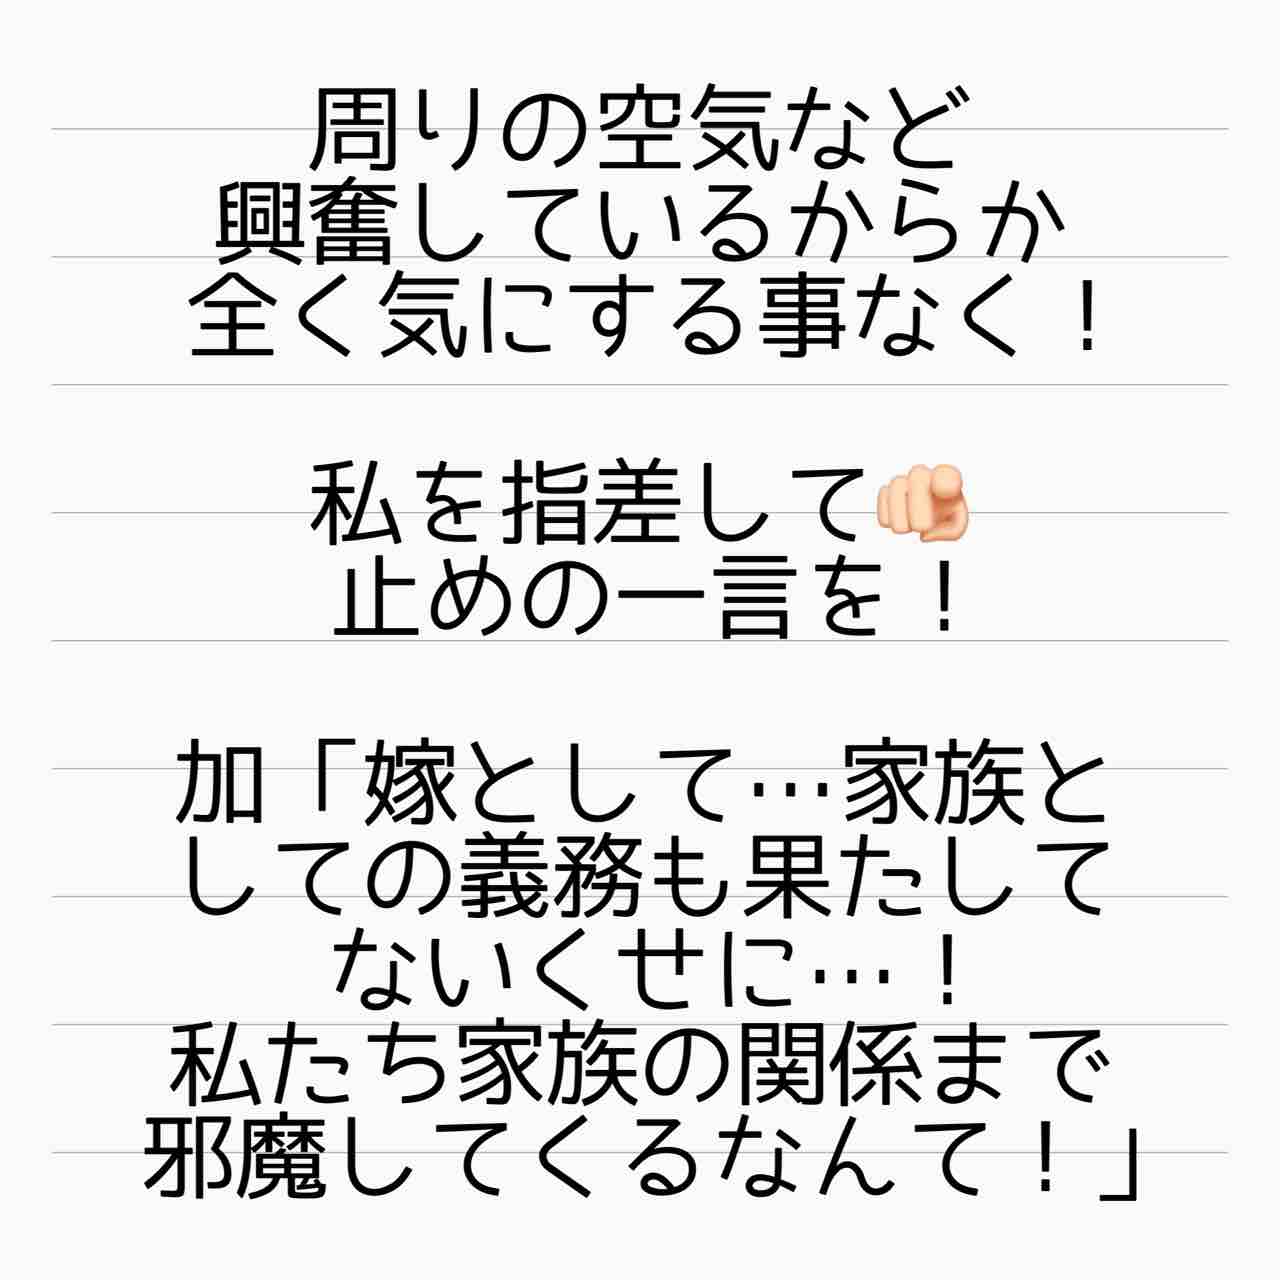 周りの空気など
興奮しているからか
全く気にする事なく！
私を指差して🫵🏻
止めの一言を！
加「嫁として…家族と
しての義務も果たして
ないくせに…！
私たち家族の関係まで
邪魔してくるなんて！」